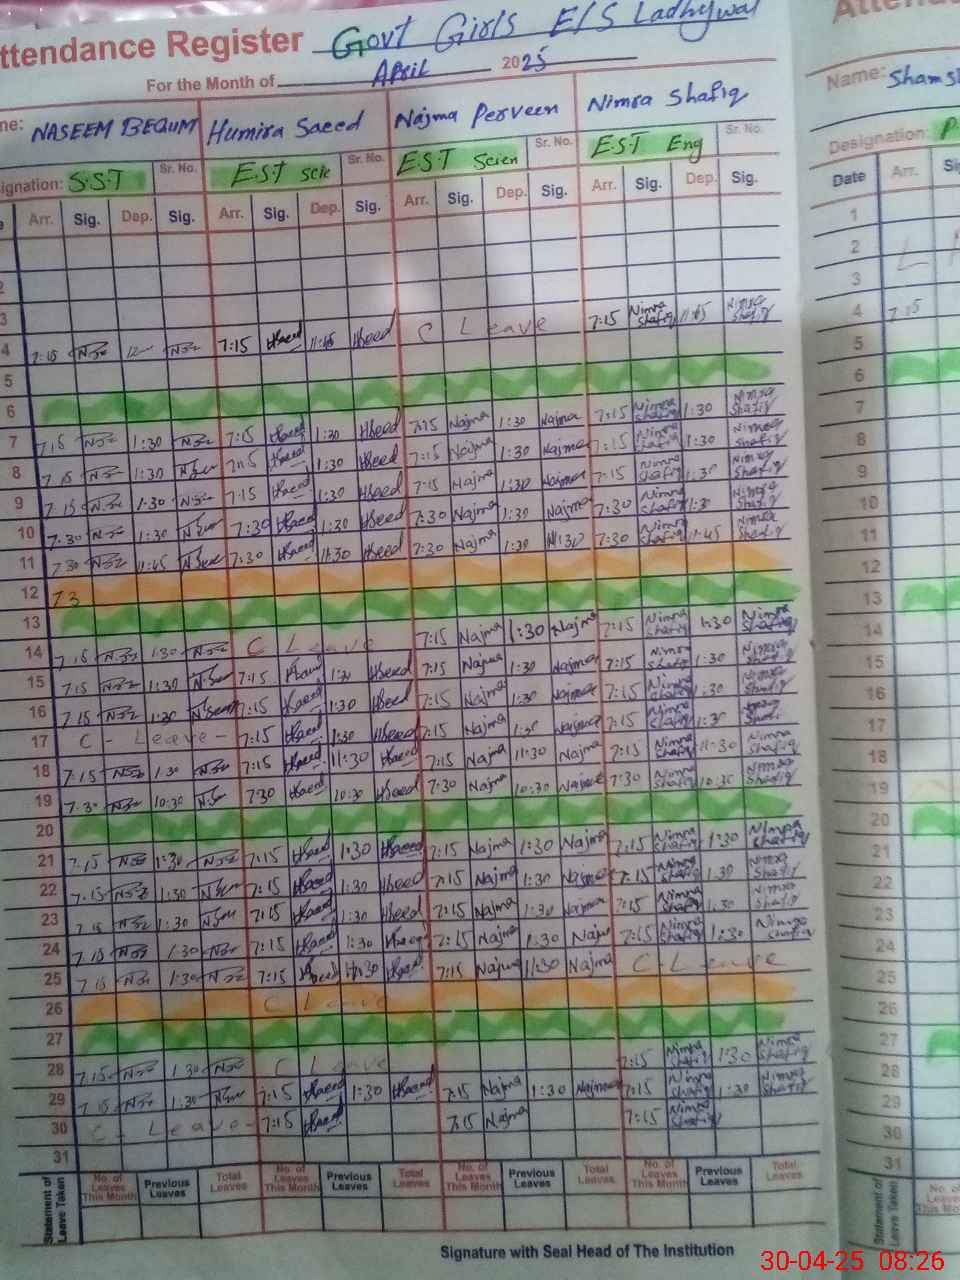 ttendance Register Govt Girls E/S Ladhywal
For the Month of April 2025
me: NASEEM BEGUM Humira Saeed Najma Perveen Nimra Shafiq
signation: S.S.T Sr. No. E.S.T Scie Sr. No. E.S.T Scien Sr. No. E.S.T Eng Sr. No.
Arr. Sig. Dep. Sig. Arr. Sig. Dep. Sig. Arr. Sig. Dep. Sig. Arr. Sig. Dep. Sig.
3
4 7:15 7:15 Hseed 11:45 Hseed C Leave 7:15 Nimra Shafiq 11:45 Nimra Shafiq
5
6
7 7:15 1:30 7:15 Hseed 1:30 Hseed 7:15 Najma 1:30 Najma 7:15 Nimra Shafiq 1:30 Nimra Shafiq
8 7:15 1:30 7:15 Hseed 1:30 Hseed 7:15 Najma 1:30 Najma 7:15 Nimra Shafiq 1:30 Nimra Shafiq
9 7:15 1:30 7:15 Hseed 1:30 Hseed 7:15 Najma 1:30 Najma 7:15 Nimra Shafiq 1:30 Nimra Shafiq
10 7:30 1:30 7:30 Hseed 1:30 Hseed 7:30 Najma 1:30 Najma 7:30 Nimra Shafiq 1:30 Nimra Shafiq
11 7:30 11:45 7:30 Hseed 11:30 Hseed 7:30 Najma 1:30 7:30 Nimra Shafiq 11:45 Nimra Shafiq
12 73
13
14 7:15 1:30 C Leave 7:15 Najma 1:30 Najma 7:15 Nimra Shafiq 1:30 Nimra Shafiq
15 7:15 1:30 7:15 Hseed 1:30 Hseed 7:15 Najma 1:30 Najma 7:15 Nimra Shafiq 1:30 Nimra Shafiq
16 7:15 1:30 7:15 Hseed 1:30 Hseed 7:15 Najma 1:30 Najma 7:15 Nimra Shafiq 1:30 Nimra Shafiq
17 C - Leave - 7:15 Hseed 1:30 Hseed 7:15 Najma 1:30 Najma 7:15 Nimra Shafiq 1:30
18 7:15 1:30 7:15 Hseed 11:30 Hseed 7:15 Najma 11:30 Najma 7:15 Nimra Shafiq 11:30 Nimra Shafiq
19 7:30 10:30 7:30 Hseed 10:30 Hseed 7:30 Najma 10:30 Najma 7:30 Nimra Shafiq 10:30 Nimra Shafiq
20
21 7:15 1:30 7:15 Hseed 1:30 Hseed 7:15 Najma 1:30 Najma 7:15 Nimra Shafiq 1:30 Nimra Shafiq
22 7:15 1:30 7:15 Hseed 1:30 Hseed 7:15 Najma 1:30 Najma 7:15 Nimra Shafiq 1:30 Nimra Shafiq
23 7:15 1:30 7:15 Hseed 1:30 Hseed 7:15 Najma 1:30 Najma 7:15 Nimra Shafiq 1:30 Nimra Shafiq
24 7:15 1:30 7:15 Hseed 1:30 Hseed 7:15 Najma 1:30 Najma 7:15 Nimra Shafiq 1:30 Nimra Shafiq
25 7:15 1:30 7:15 Hseed 11:30 Hseed 7:15 Najma 11:30 Najma C-Leave
26 C Leave
27
28 7:15 1:30 C Leave 7:15 Nimra Shafiq 1:30 Nimra Shafiq
29 7:15 1:30 7:15 Hseed 1:30 Hseed 7:15 Najma 1:30 Najma 7:15 Nimra Shafiq 1:30 Nimra Shafiq
30 C - Leave - 7:15 Hseed 7:15 Najma 7:15 Nimra Shafiq
31
Statement of Leave Taken No. of Leaves This Month Previous Leaves Total Leaves No. of Leaves This Month Previous Leaves Total Leaves No. of Leaves This Month Previous Leaves Total Leaves No. of Leaves This Month Previous Leaves Total Leaves
Signature with Seal Head of The Institution
Atten
Name: Shams
Designation: P
Date Arr. Si
1
2 L
3
4 7:15
5
6
7
8
9
10
11
12
13
14
15
16
17
18
19
20
21
22
23
24
25
26
27
28
29
30
31
Statement of Leave Taken No. of Leaves This Month
30-04-25 08:26